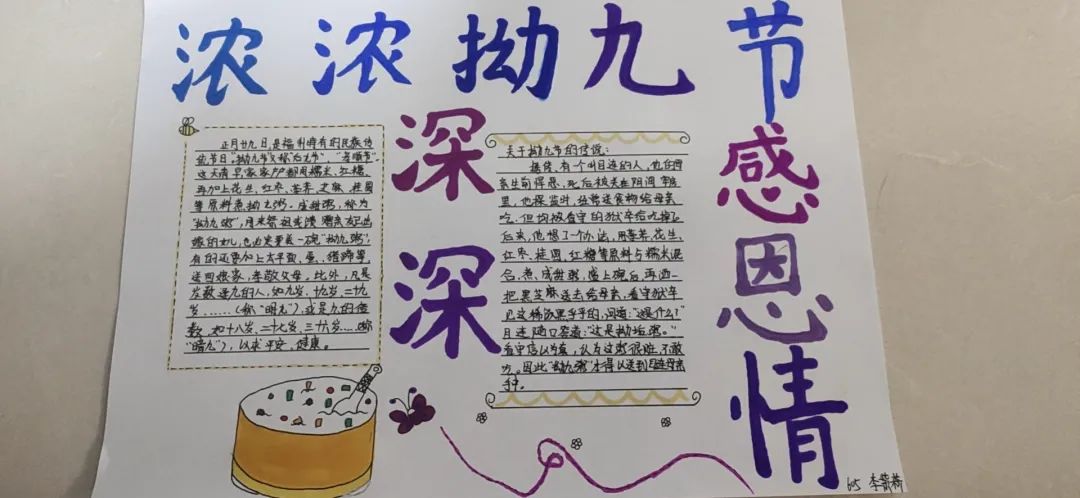 浓浓拗九节
深深感恩情
正月廿九日,是福州特有的民族传
统节日"拗九节"又称"后九节""孝顺节"
这天清早,家家户户都用糯米,红糖,
再加上花生,红枣,荸荠,芝麻,桂圆
等原料煮拗九粥。成甜粥,称为
"拗九粥",用来祭祖或馈赠亲友已出
嫁的女儿,也必定要送一碗"拗九粥",
有的还要加上太平面、蛋、猪蹄等,
送回娘家,孝敬父母,此外,凡是
岁数逢九的人,如九岁、十九岁、二十九
岁……(称"明九"),或是九的倍
数,如十八岁、二十七岁、三十六岁……(称
"暗九"),以求平安、健康。
关于拗九节的传说:
据传,有一个叫目连的人,他的母
亲生前得恶,死后被关在阴间牢狱
里,他探监时,经常送食物给母亲
吃,但均被看守的狱卒给吃掉了
后来,他想了一个办法,用荸荠、花生、
红枣、桂圆、红糖等原料与糯米混
合,煮成甜粥,盛上碗后再洒一
把黑芝麻送去给母亲,看守狱卒
见这稀饭黑乎乎的,问道:"这是什么?"
目连随口答道:"这是拗垢粥。"
看守信以为真,认为这粥很脏,不敢
吃。因此"拗九粥"才得以送到目连母亲
手中。
605 李